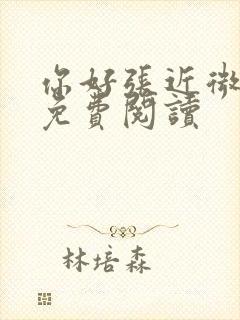 你好張近微
免費閱讀
林培森